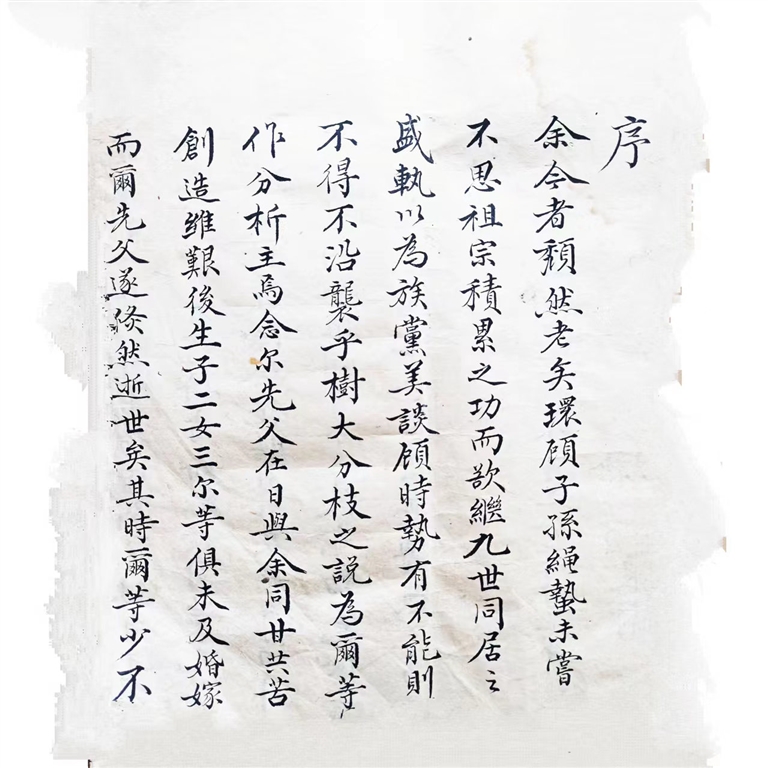 序
余今者頹然老矣環顧子孫繩蟄未嘗
不思祖宗積累之功而欲繼九世同居之
盛執以為族黨美談顧時勢有不能則
不得不沿襲乎樹大分枝之説為爾等
作分析主焉念尔先父在日與余同甘共苦
創造維艱後生子二女三尔等俱未及婚嫁
而爾先父遂倏然逝世矣其時爾等少不